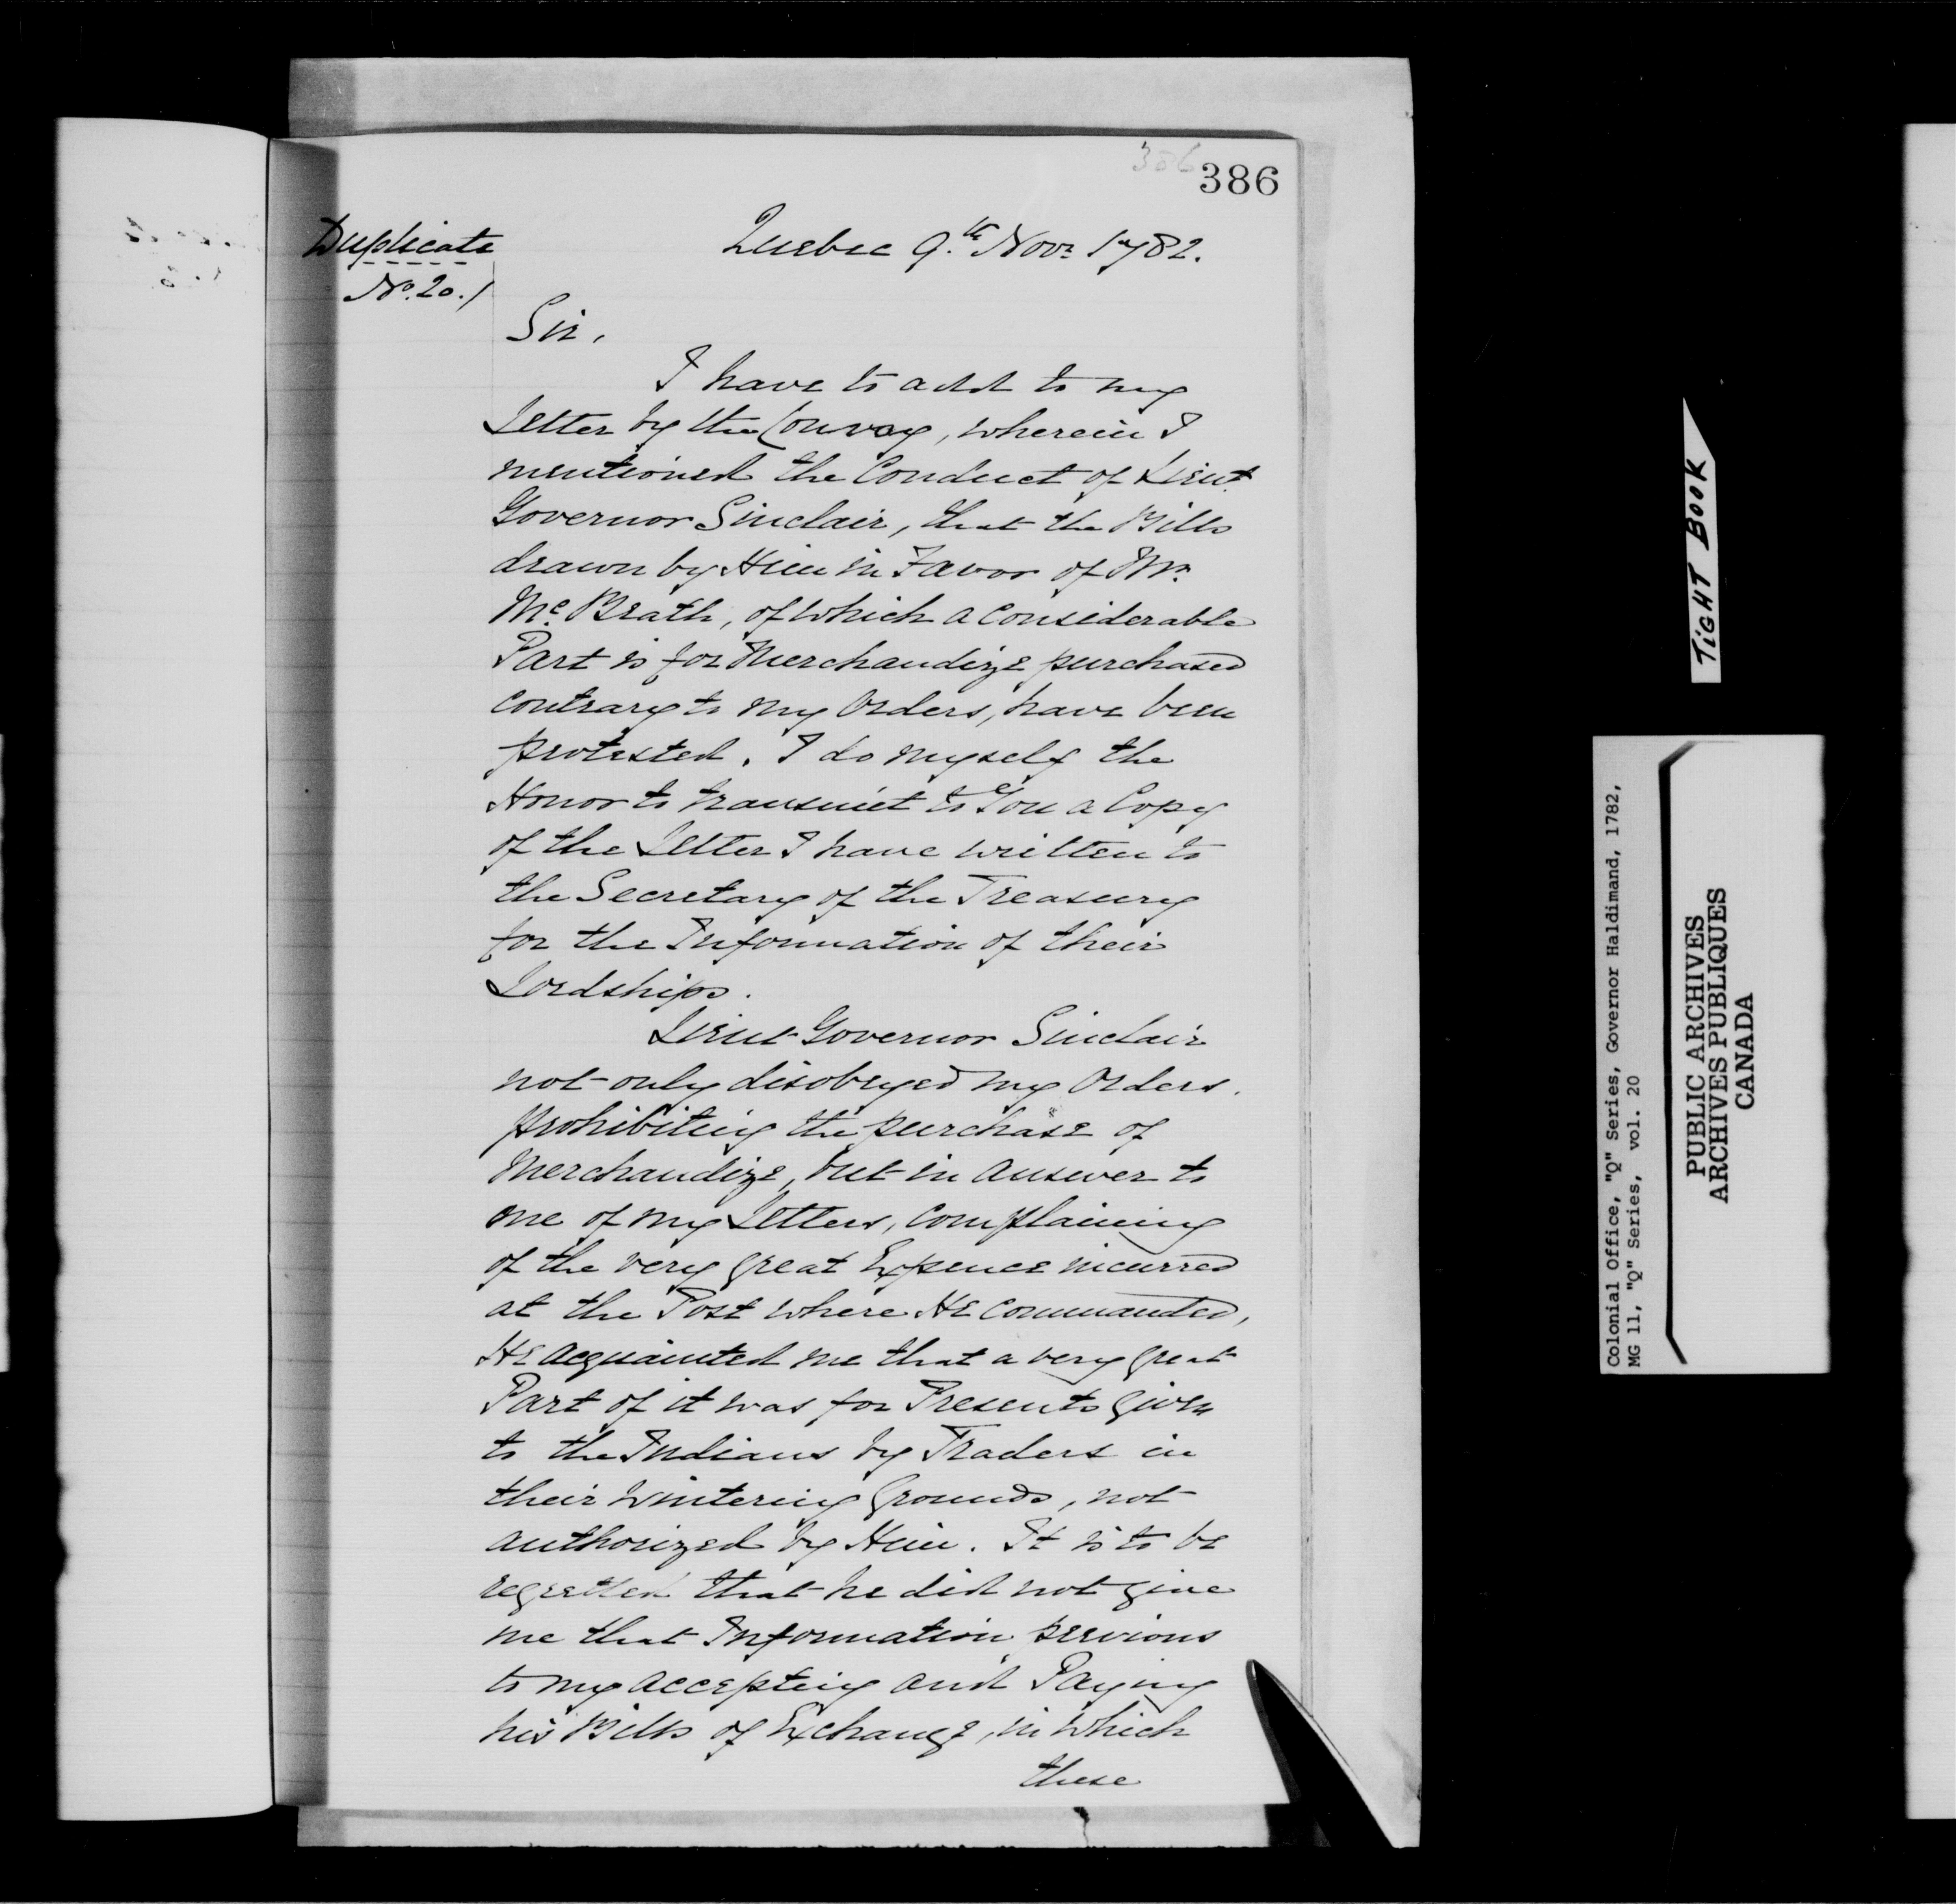 386
Duplicate
No. 20.
Quebec 9.th Novr. 1782.
Sir,
I have to add to my
Letter by the Convoy, wherein I
mentioned the Conduct of Lieut.
Governor Sinclair, that the Bills
drawn by Him in Favor of Mr.
Mc.Beath, of which a considerable
Part is for Merchandize purchased
contrary to my Orders, have been
protested. I do myself the
Honor to transmit to You a Copy
of the Letter I have written to
the Secretary of the Treasury
for the Information of their
Lordships.
Lieut Governor Sinclair
not only disobeyed my Orders
prohibiting the purchase of
Merchandize, but in answer to
one of my Letters, complaining
of the very great Expence incurred
at the Post where He commanded,
He acquainted me that a very great
Part of it was for Presents given
to the Indians by Traders in
their wintering Grounds, not
authorized by Him. It is to be
regretted that he did not give
me that Information previous
to my accepting and Paying
his Bills of Exchange, in which
these
TIGHT BOOK
Colonial Office, "Q" Series, Governor Haldimand, 1782,
MG 11, "Q" Series, vol. 20
PUBLIC ARCHIVES
ARCHIVES PUBLIQUES
CANADA